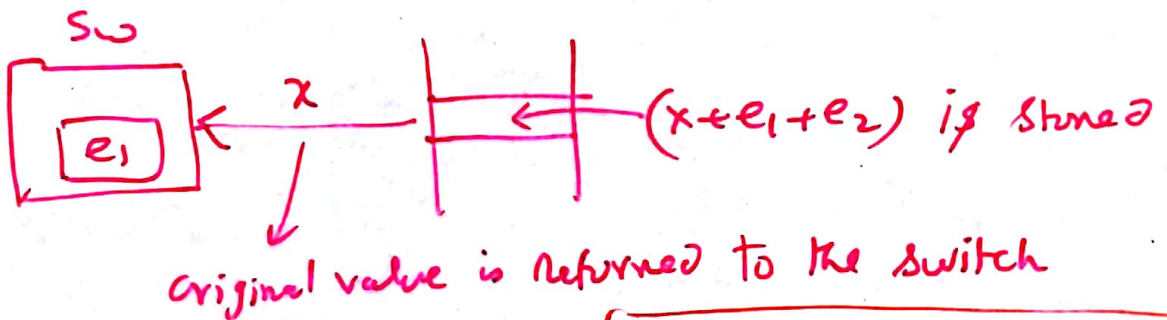 SW
x
e₁
(x+e₁+e₂) is stored
original value is returned to the switch